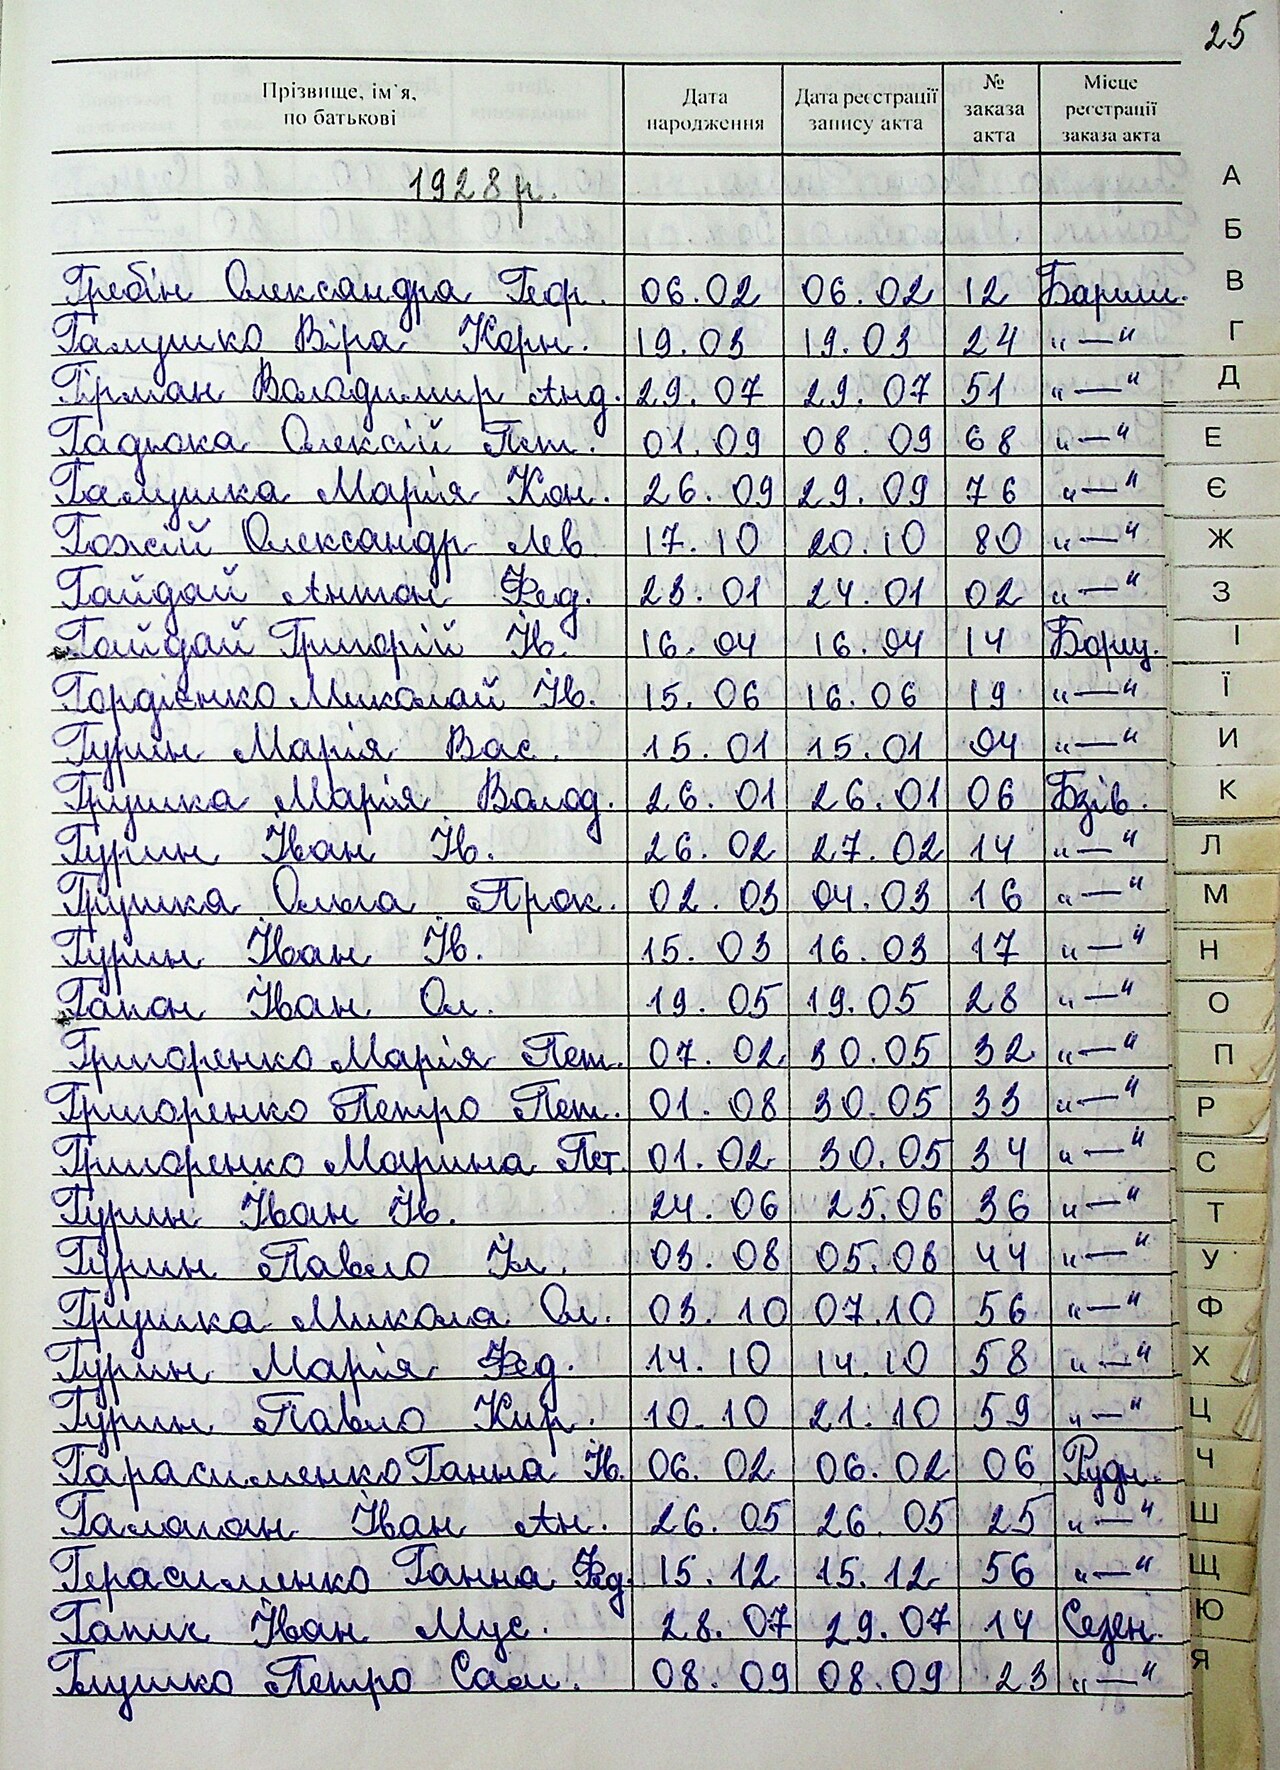 25
Прізвище, ім`я, по батькові Дата народження Дата реєстрації запису акта № заказа акта Місце реєстрації заказа акта
1928 р.
Гребін Олександра Геор. 06.02 06.02 12 Бариш.
Галушко Віра Корн. 19.03 19.03 24 "—"
Гірман Володимир Анд. 29.07 29.07 51 "—"
Гадюка Олексій Пет. 01.09 08.09 68 "—"
Галушка Марія Кон. 26.09 29.09 76 "—"
Гожій Олександр Лев 17.10 20.10 80 "—"
Гайдай Антон Фед. 23.01 24.01 02 "—"
Гайдай Григорій Ів. 16.04 16.04 14 Борщ.
Гордієнко Миколай Ів. 15.06 16.06 19 "—"
Гурин Марія Вас. 15.01 15.01 04 "—"
Грушка Марія Волод. 26.01 26.01 06 Бзів.
Гурин Іван Ів. 26.02 27.02 14 "—"
Грушка Ольга Прок. 02.03 04.03 16 "—"
Гурин Іван Ів. 15.03 16.03 17 "—"
Гапон Іван Ол. 19.05 19.05 28 "—"
Григоренко Марія Пет. 07.02 30.05 32 "—"
Григоренко Петро Пет. 01.08 30.05 33 "—"
Григоренко Марина Пет. 01.02 30.05 34 "—"
Гурин Іван Ів. 24.06 25.06 36 "—"
Гурин Павло Іл. 03.08 05.08 44 "—"
Грушка Микола Ол. 03.10 07.10 56 "—"
Гурин Марія Фед. 14.10 14.10 58 "—"
Гурин Павло Кир. 10.10 21.10 59 "—"
Гарасименко Ганна Ів. 06.02 06.02 06 Рудн.
Галаган Іван Ан. 26.05 26.05 25 "—"
Герасименко Ганна Фед. 15.12 15.12 56 "—"
Гапич Іван Мус. 28.07 29.07 14 Сезен.
Глушко Петро Сам. 08.09 08.09 23 "—"
А
Б
В
Г
Д
Е
Є
Ж
З
І
Ї
И
К
Л
М
Н
О
П
Р
С
Т
У
Ф
Х
Ц
Ч
Ш
Щ
Ю
Я